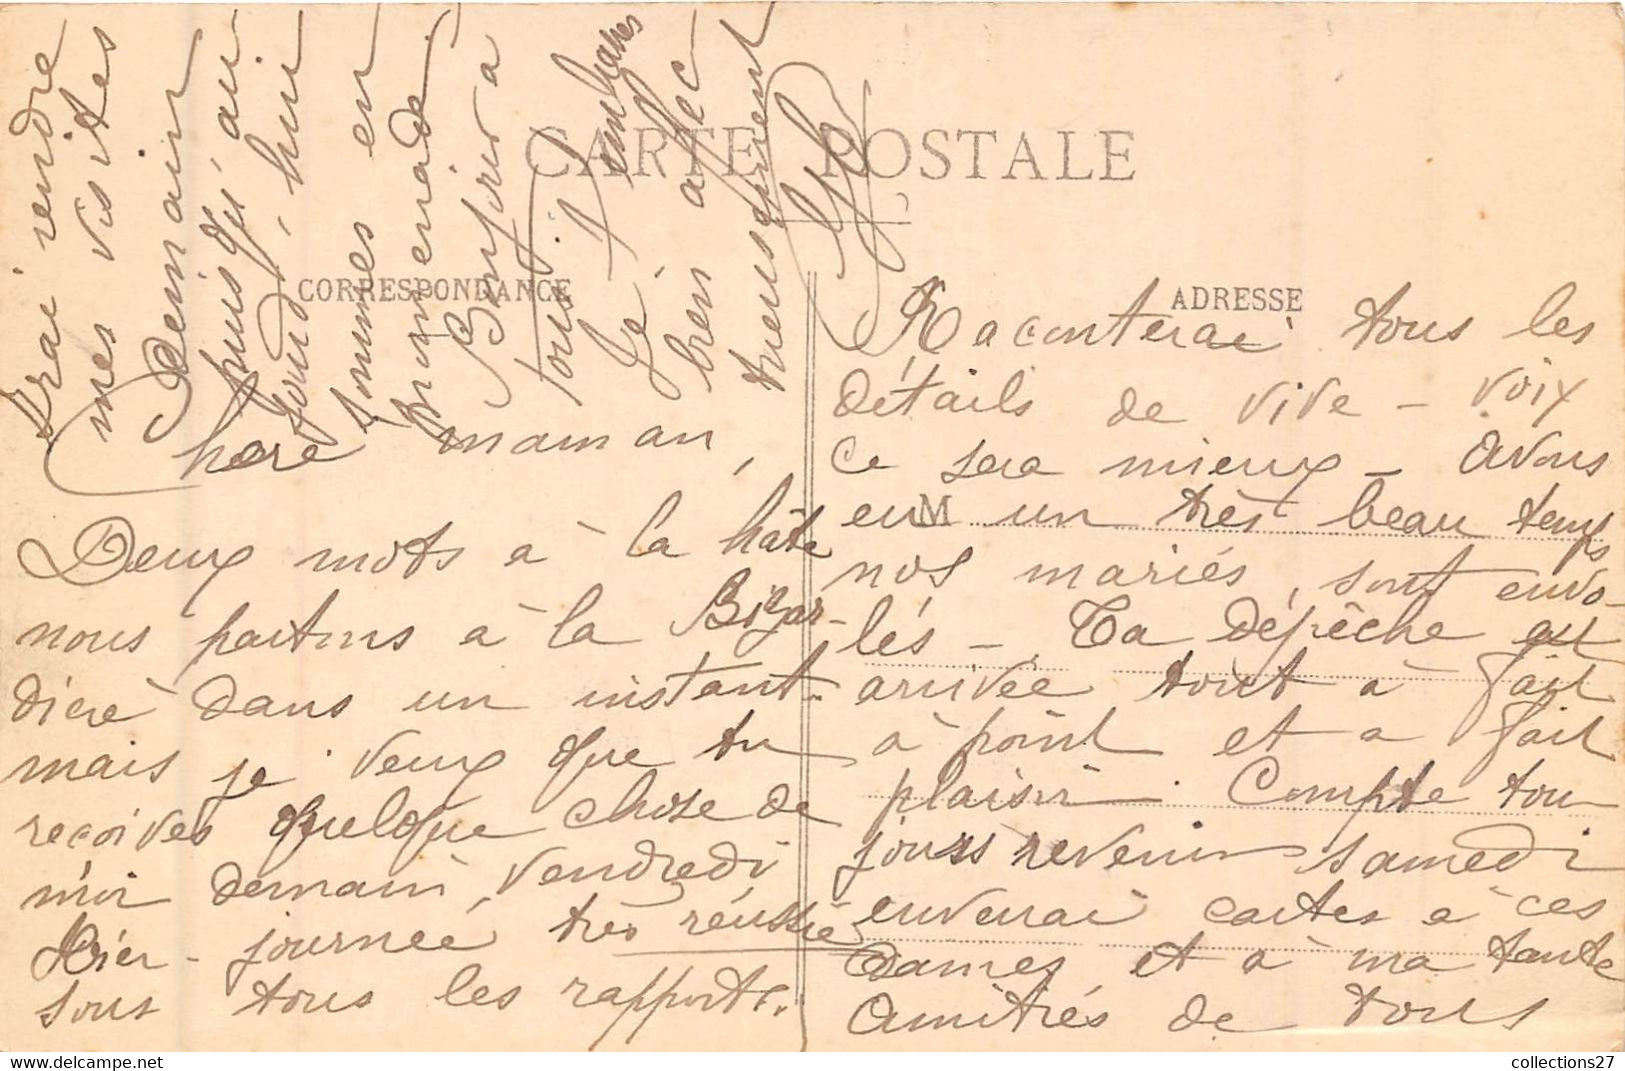 CARTE POSTALE
CORRESPONDANCE
ADRESSE
Chere maman,
Deux mots à la hâte
nous partons à la Bizar-
dière dans un instant.
mais je veux que tu
reçoives quelque chose de
moi demain, vendredi
Hier - journée très réussie
sous tous les rapports.
Raconterai tous les
détails de vive - voix
ce sera mieux - avons
eu M un très beau temps
nos mariés, sont envo-
lés - Ta dépêche est
arrivée tout à fait
à point et a fait
plaisir. Compte tou
jours revenir samedi
enverrai cartes à ces
Dames et à ma tante
Amitiés de tous
Irai rendre
mes visites
Demain
puisqu'au
jourd'hui
sommes en
promenade
Bonjour à
tous.
Je t'embrasse
bien affec
tueusement
collections27